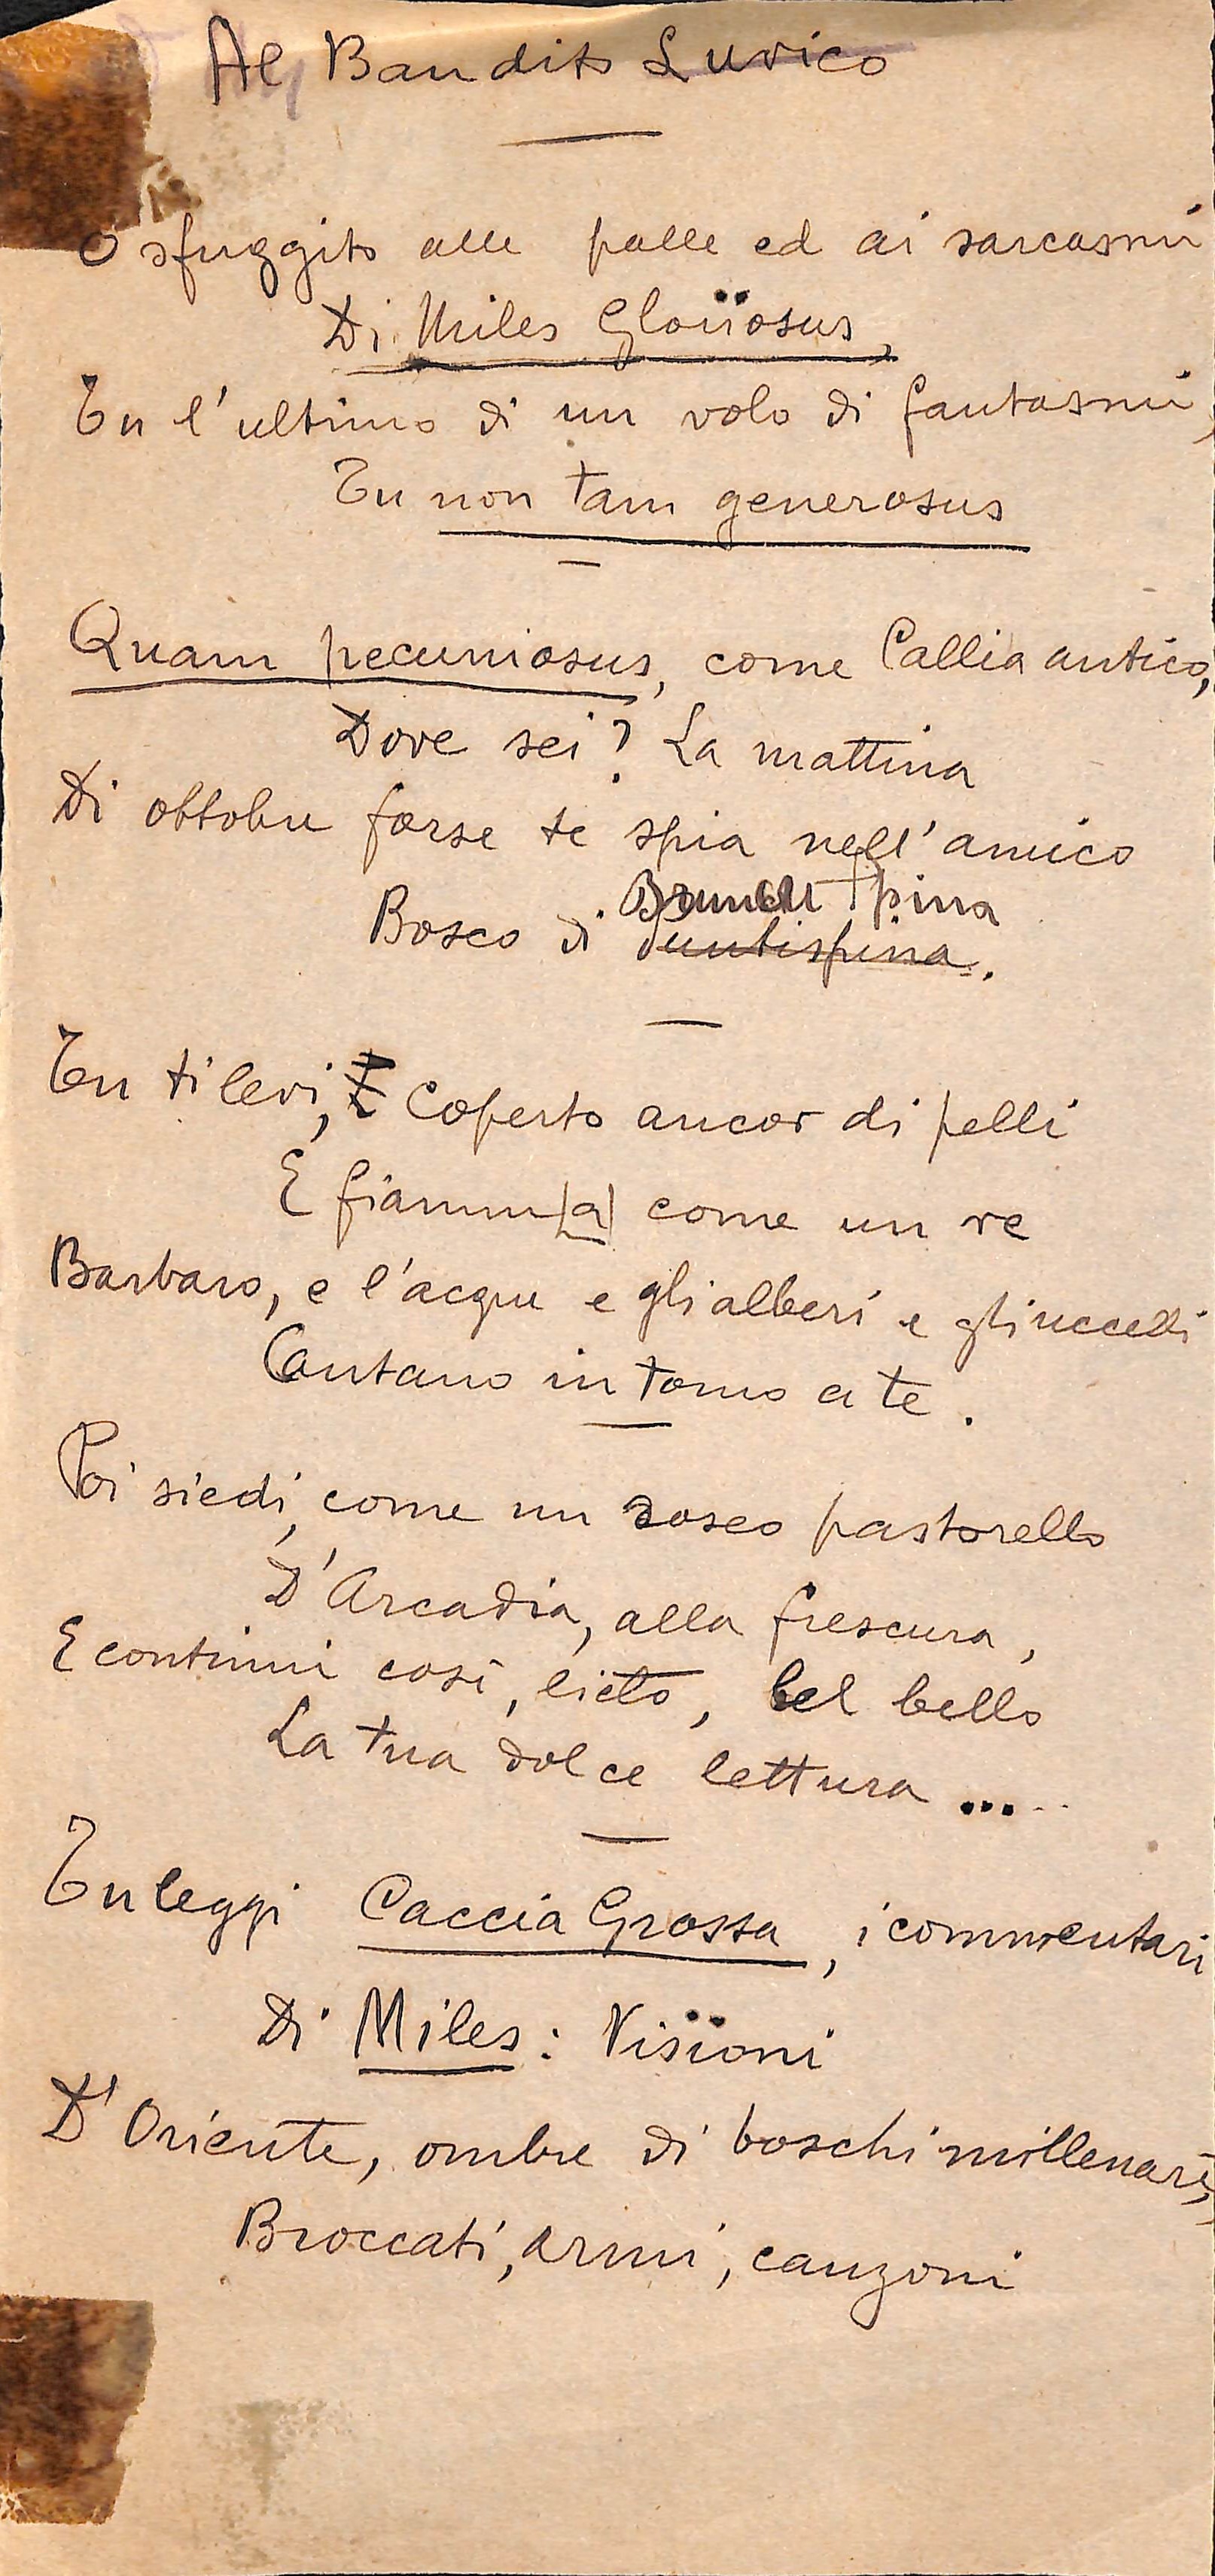 Al Bandito Lurico
O sfuggito alle palle ed ai sarcasmi
Di Miles Glorïosus,
Tu l'ultimo di un volo di fantasmi,
Tu non tam generosus
Quam pecuniosus, come Callia antico,
Dove sei? La mattina
Di ottobre forse te spia nell'amico
Bruncu Spina
Bosco di .
Tu ti levi, Coperto ancor di pelli
E fiamm|a| come un re
Barbaro, e l'acque e gli alberi e gli uccelli
Cantano intorno a te.
Poi siedi, come un roseo pastorello
D'Arcadia, alla frescura,
E continui così, lieto, bel bello
La tua dolce lettura .....
Tu leggi Caccia Grossa, i commentari
Di Miles: Visïoni
D'Oriente, ombre di boschi millenari,
Broccati, armi, canzoni